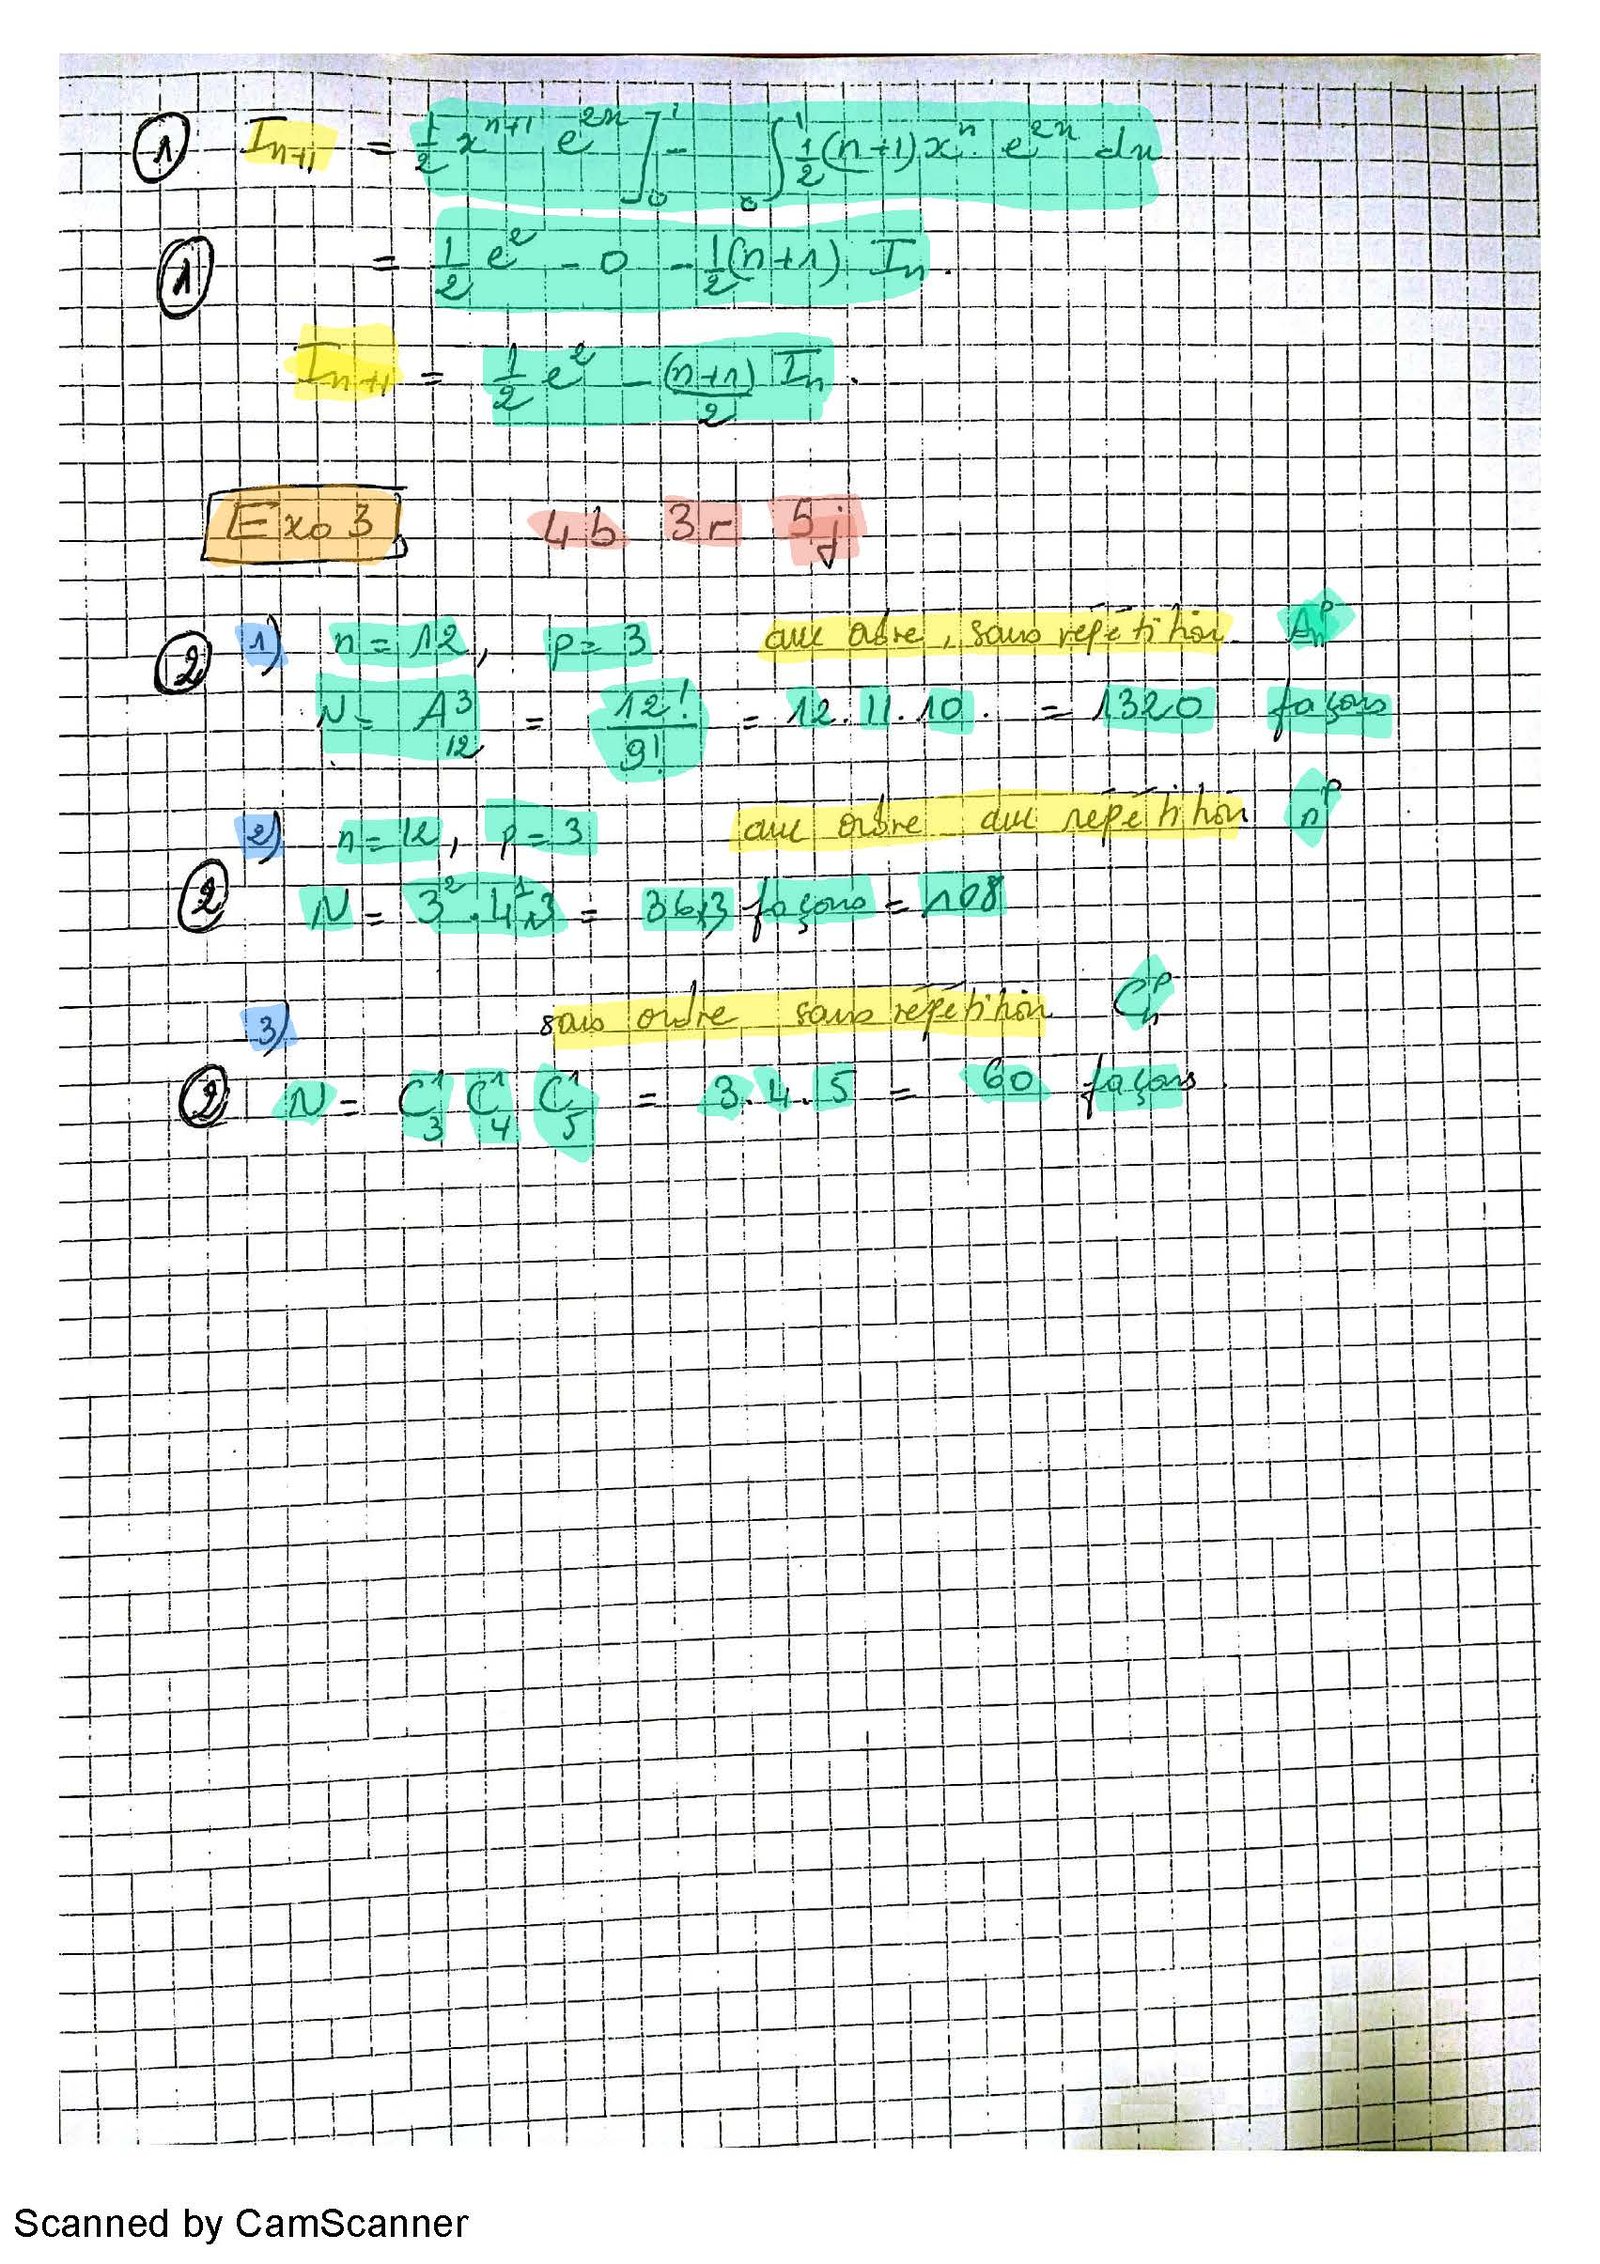 ① I_{n+1} = 1/2 x^{n+1} e^{2x} ]_0^1 - ∫_0^1 1/2 (n+1) x^n e^{2x} dx
① = 1/2 e^2 - 0 - 1/2 (n+1) I_n.
I_{n+1} = 1/2 e^2 - (n+1)/2 I_n.
Exo 3 4b 3r 5j
② 1) n = 12, p = 3 avec ordre, sans répétition A_n^p
N = A_{12}^3 = 12!/9! = 12.11.10. = 1320 façons
2) n = 12, p = 3 avec ordre avec répétition n^p
② N = 3^2 . 4^1 . 3 = 36.3 façons = 108
3) sans ordre sans répétition C_n^p
② N = C_3^1 C_4^1 C_5^1 = 3.4.5 = 60 façons.
Scanned by CamScanner